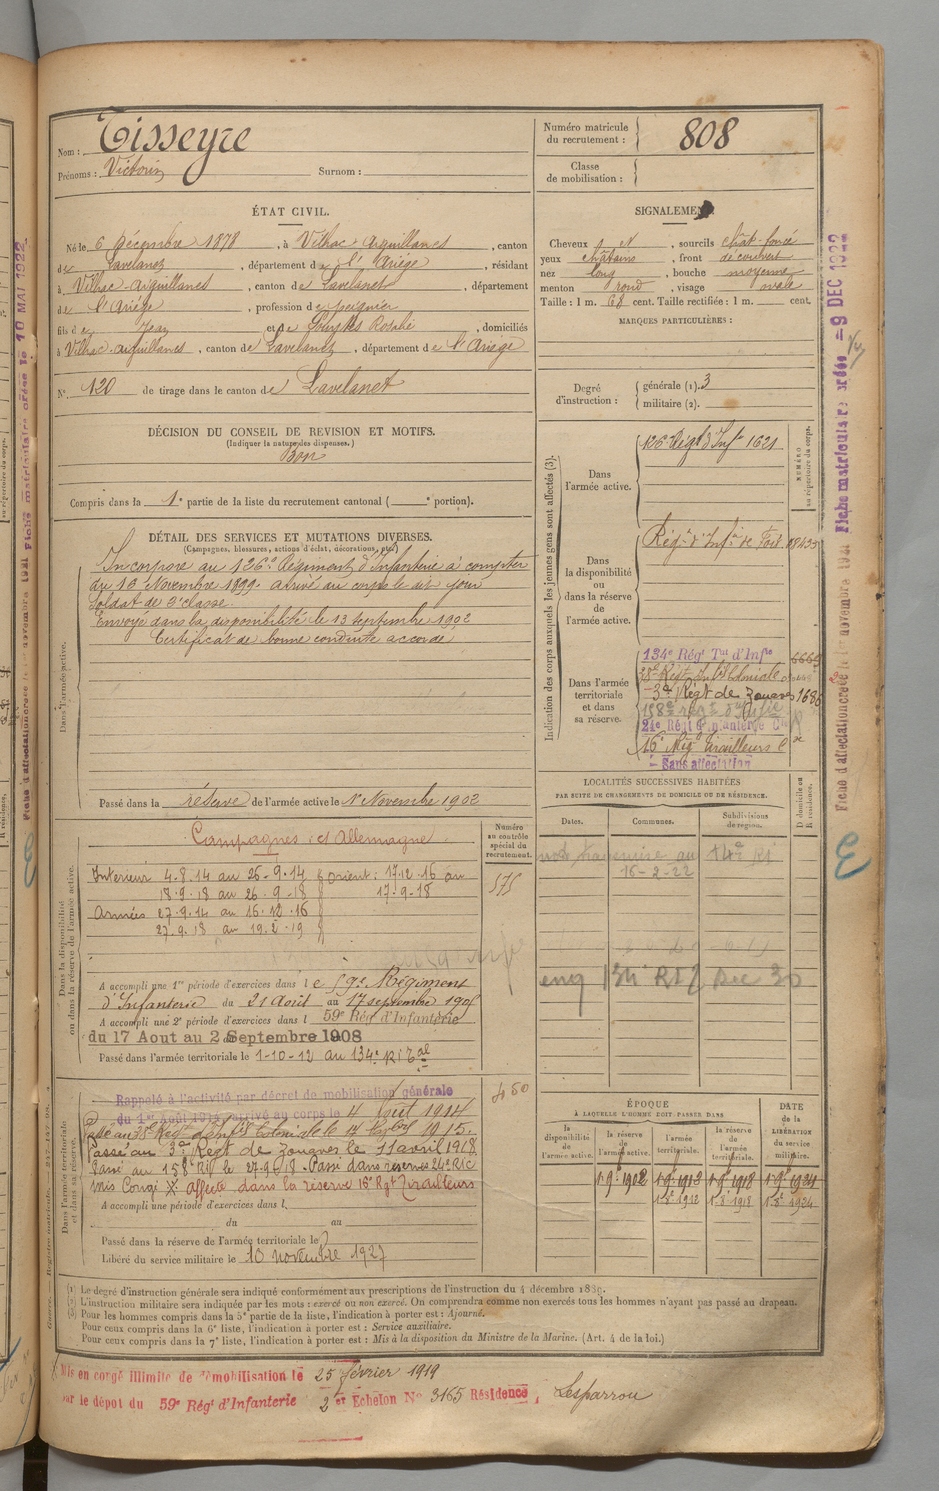 Nom : Tisseyre
Prénoms : Victorin Surnom :
Numéro matricule du recrutement : 808
Classe de mobilisation :
ÉTAT CIVIL.
Né le 6 Décembre 1878, à Vilhac-Aiguillanes, canton
de Lavelanet, département de l'Ariège, résidant
à Vilhac-Aiguillanes, canton de Lavelanet, département
de l'Ariège, profession de peignier
fils de Jean et de Rosalie, domiciliés
à Vilhac-Aiguillanes, canton de Lavelanet, département de l'Ariège
N° 120 de tirage dans le canton de Lavelanet
SIGNALEMENT.
Cheveux N, sourcils chât-foncé
yeux châtains, front découvert
nez long, bouche moyenne
menton rond, visage ovale
Taille : 1 m. 68 cent. Taille rectifiée : 1 m. cent.
MARQUES PARTICULIÈRES :
Degré d'instruction : générale (1). 3
militaire (2).
DÉCISION DU CONSEIL DE REVISION ET MOTIFS.
(Indiquer la nature des dispenses.)
Bon
Compris dans la 1e partie de la liste du recrutement cantonal ( e portion).
DÉTAIL DES SERVICES ET MUTATIONS DIVERSES.
(Campagnes, blessures, actions d'éclat, décorations, etc.)
Dans l'armée active.
Incorporé au 126e Régiment d'Infanterie à compter
du 16 Novembre 1899. arrivé au corps le dit jour
soldat de 2e classe.
Envoyé dans la disponibilité le 13 septembre 1902
Certificat de bonne conduite accordé
Passé dans la réserve de l'armée active le 1er Novembre 1902
Indication des corps auxquels les jeunes gens sont affectés (3).
NUMÉRO au répertoire du corps.
Dans l'armée active.
126e Régt d'Infie 1621
Dans la disponibilité ou dans la réserve de l'armée active.
Régt d'Infie de Foix 08433
Dans l'armée territoriale et dans sa réserve.
134e Régt Tal d'Infie
38e Régt Infie Coloniale
3e Régt de Zouaves 1686
158e
24e Régt d'Infanterie Cle
16e Rég Tirailleurs
Sans affectation
LOCALITÉS SUCCESSIVES HABITÉES
PAR SUITE DE CHANGEMENTS DE DOMICILE OU DE RÉSIDENCE.
Dates. Communes. Subdivisions de région. D domicile ou R résidence.
au 14e RI
16-2-22
Dec 30
Numéro au contrôle spécial du recrutement.
575
Dans la disponibilité ou dans la réserve de l'armée active.
Campagnes : ct Allemagne
Intérieur 4.8.14 au 26-9.14 Orient : 17.12.16 au
18.9.18 au 26.9-18 17-9-18
Armées 27.9.14 au 16.12.16
27.9.18 au 19.2.19
A accompli une 1re période d'exercices dans le 59e Régiment
d'Infanterie du 21 août au 17 septembre 190
A accompli une 2e période d'exercices dans l 59e Rég d'Infanterie
du 17 Aout au 2 Septembre 1908
Passé dans l'armée territoriale le 1-10-12 au 134e RI Tal
450
Dans l'armée territoriale et dans sa réserve.
Rappelé à l'activité par décret de mobilisation générale
du 1er Août 1914 arrivé au corps le 4 Août 1914
Passé au 38e Régt d'Infie Coloniale le 1915.
Passé au 3e Régt de Zouaves le 11 avril 1918
Passé au 158e RI le 27.9.18 - Passé dans réserves 24e RIC
mis Congé X affecté dans la réserve 16e Rgt Tirailleurs
A accompli une période d'exercices dans l
du au
Passé dans la réserve de l'armée territoriale le
Libéré du service militaire le 10 novembre 1927
ÉPOQUE
À LAQUELLE L'HOMME DOIT PASSER DANS
la disponibilité de l'armée active. la réserve de l'armée active. l'armée territoriale. la réserve de l'armée territoriale. DATE de la LIBÉRATION du service militaire.
(1) Le degré d'instruction générale sera indiqué conformément aux prescriptions de l'instruction du 4 décembre 1889.
(2) L'instruction militaire sera indiquée par les mots : exercé ou non exercé. On comprendra comme non exercés tous les hommes n'ayant pas passé au drapeau.
(3) Pour les hommes compris dans la 5e partie de la liste, l'indication à porter est : Ajourné.
Pour ceux compris dans la 6e liste, l'indication à porter est : Service auxiliaire.
Pour ceux compris dans la 7e liste, l'indication à porter est : Mis à la disposition du Ministre de la Marine. (Art. 4 de la loi.)
Mis en congé illimité de démobilisation le 25 février 1919
par le dépôt du 59e Régt d'Infanterie 2e Echelon No 3165 Résidence, Lesparrou
Fiche matriculaire créée le 10 MAI 1922
Fiche matriculaire créée - 9 DEC 1922
Fiche d'affectation créée le 1er novembre 1921